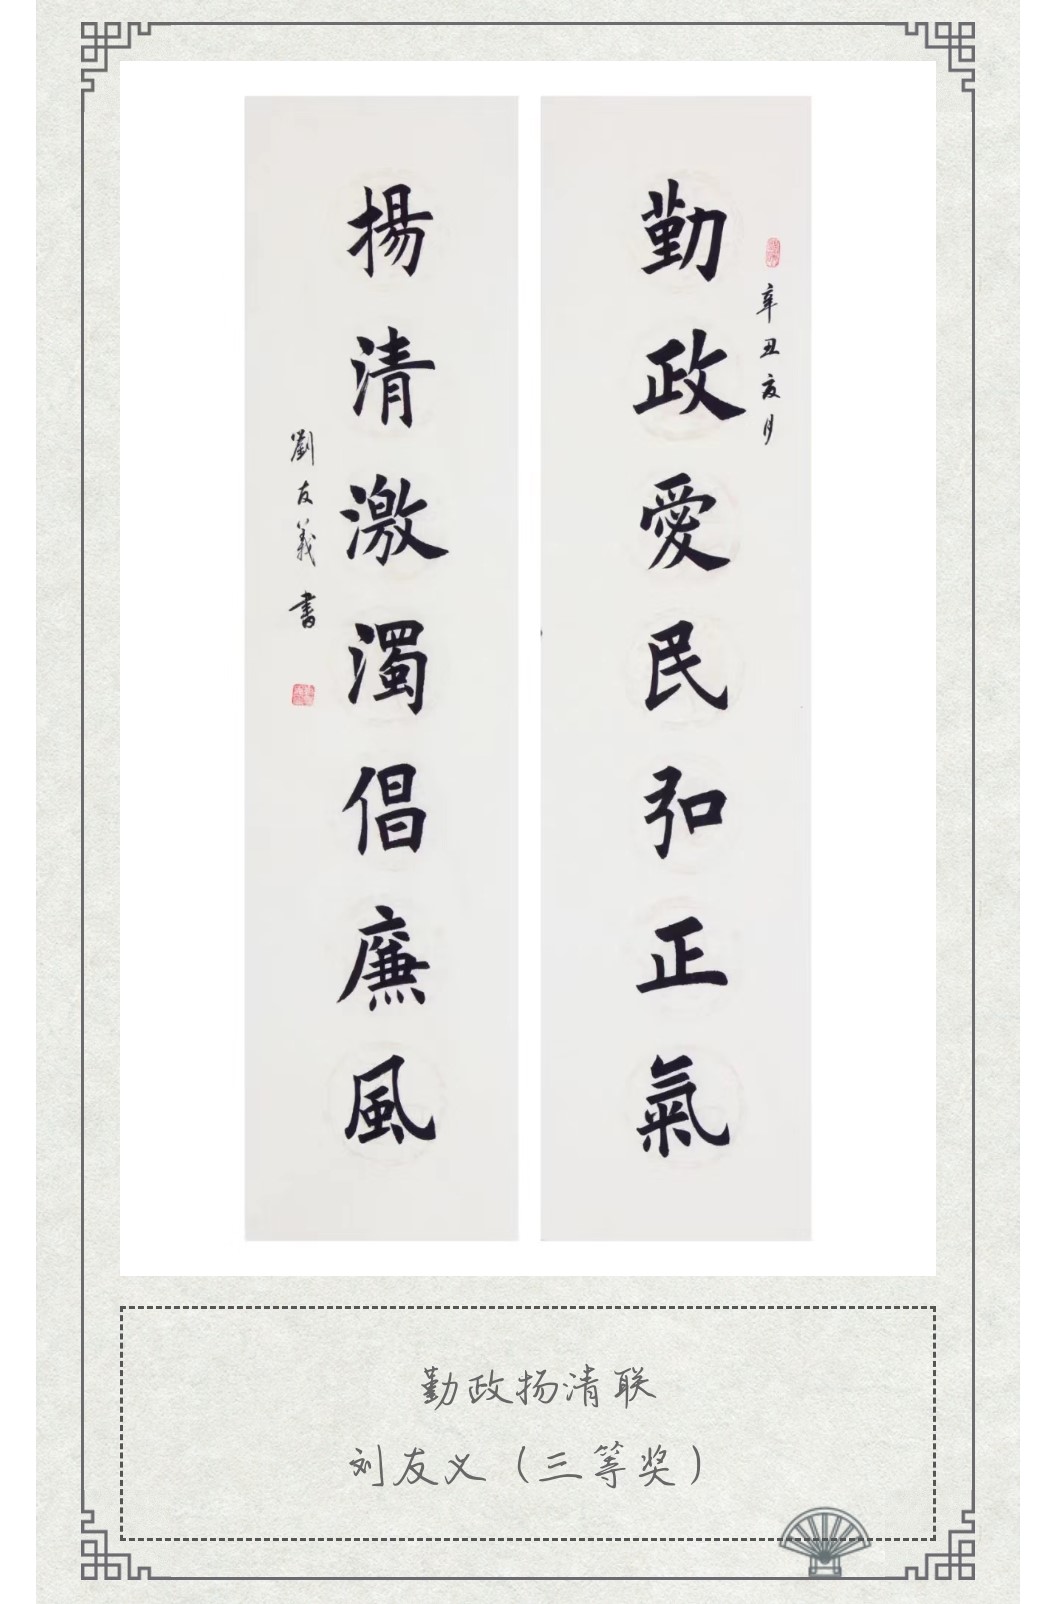 勤政愛民弘正氣
辛丑夏月
揚清激濁倡廉風
劉友義書
勤政扬清联
刘友义（三等奖）